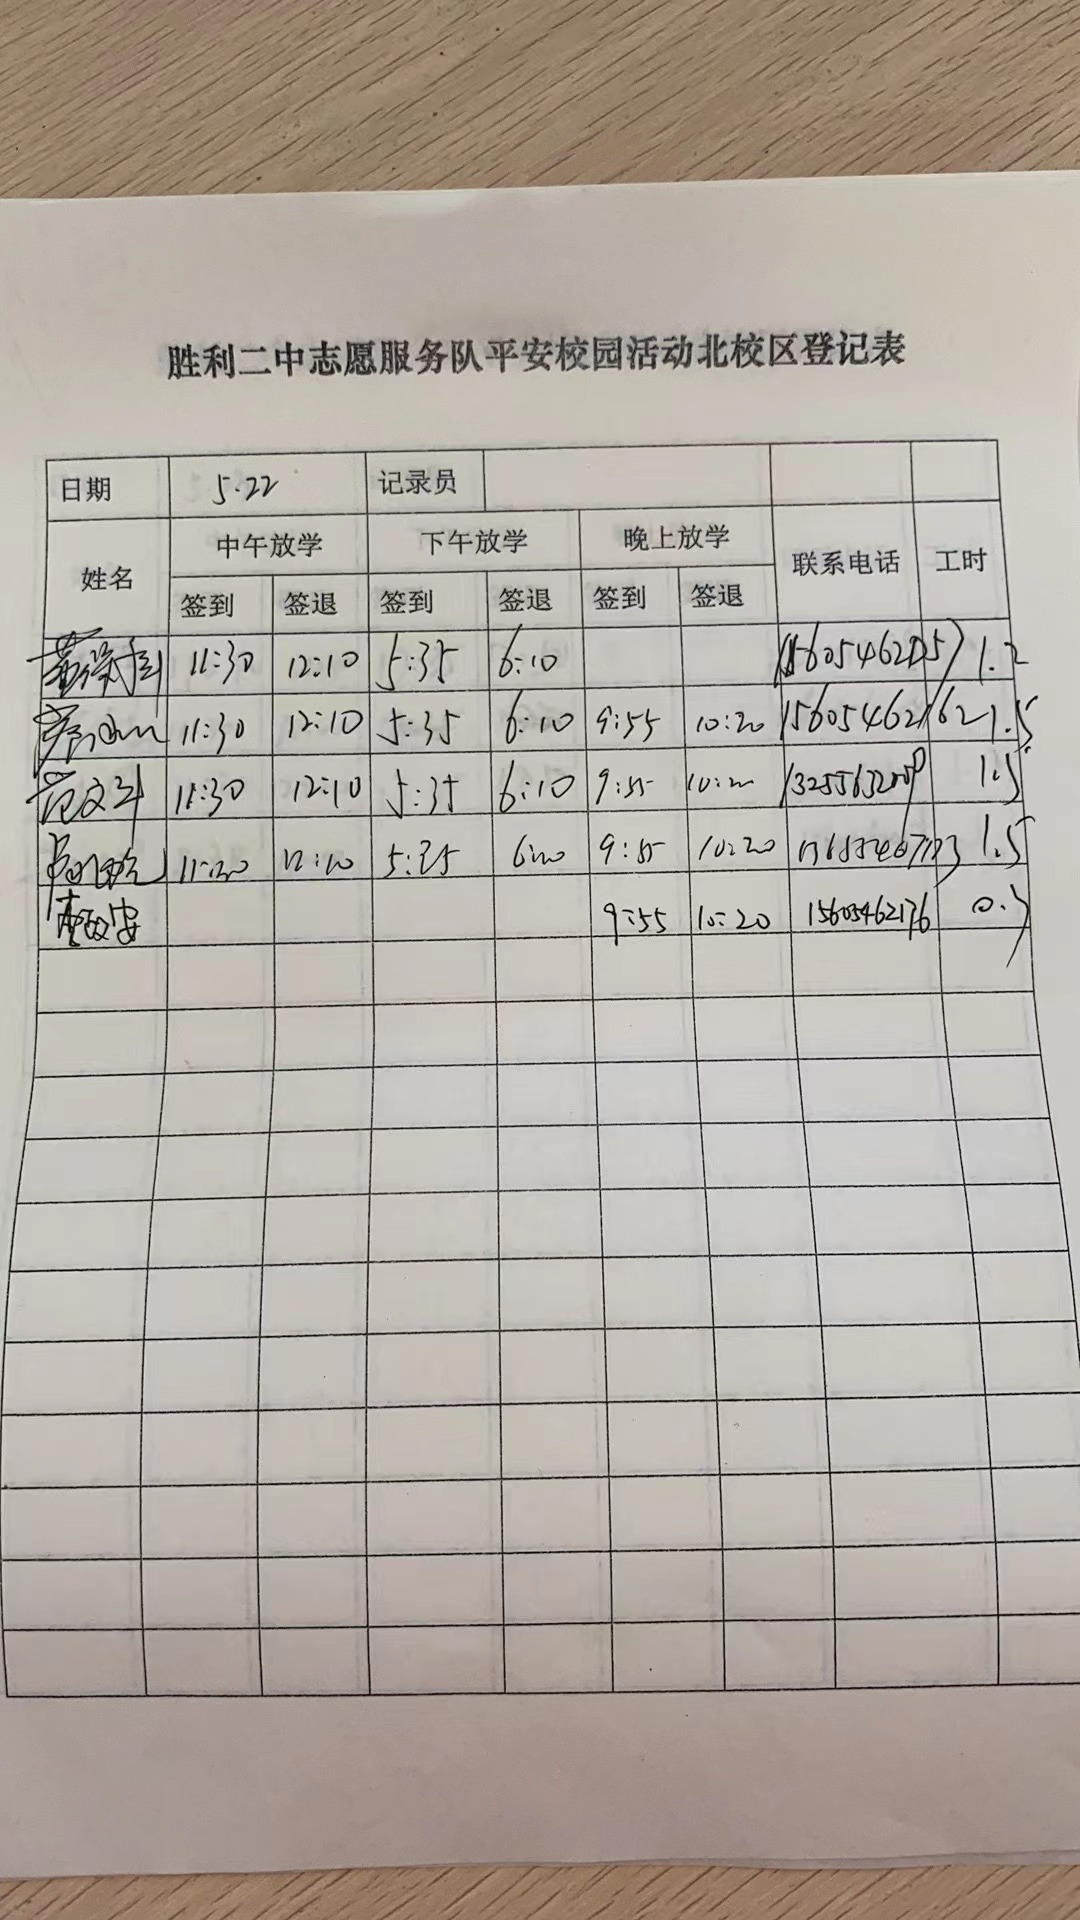 胜利二中志愿服务队平安校园活动北校区登记表
日期 5.22 记录员
姓名 中午放学 下午放学 晚上放学 联系电话 工时
签到 签退 签到 签退 签到 签退
11:30 12:10 5:35 6:10 1.2
11:30 12:10 5:35 6:10 9:55 10:20 15605462162 1.5
范文军 11:30 12:10 5:35 6:10 9:55 10:20 1.5
11:30 12:10 5:35 6:10 9:55 10:20 1.5
9:55 10:20 15605462176 0.3